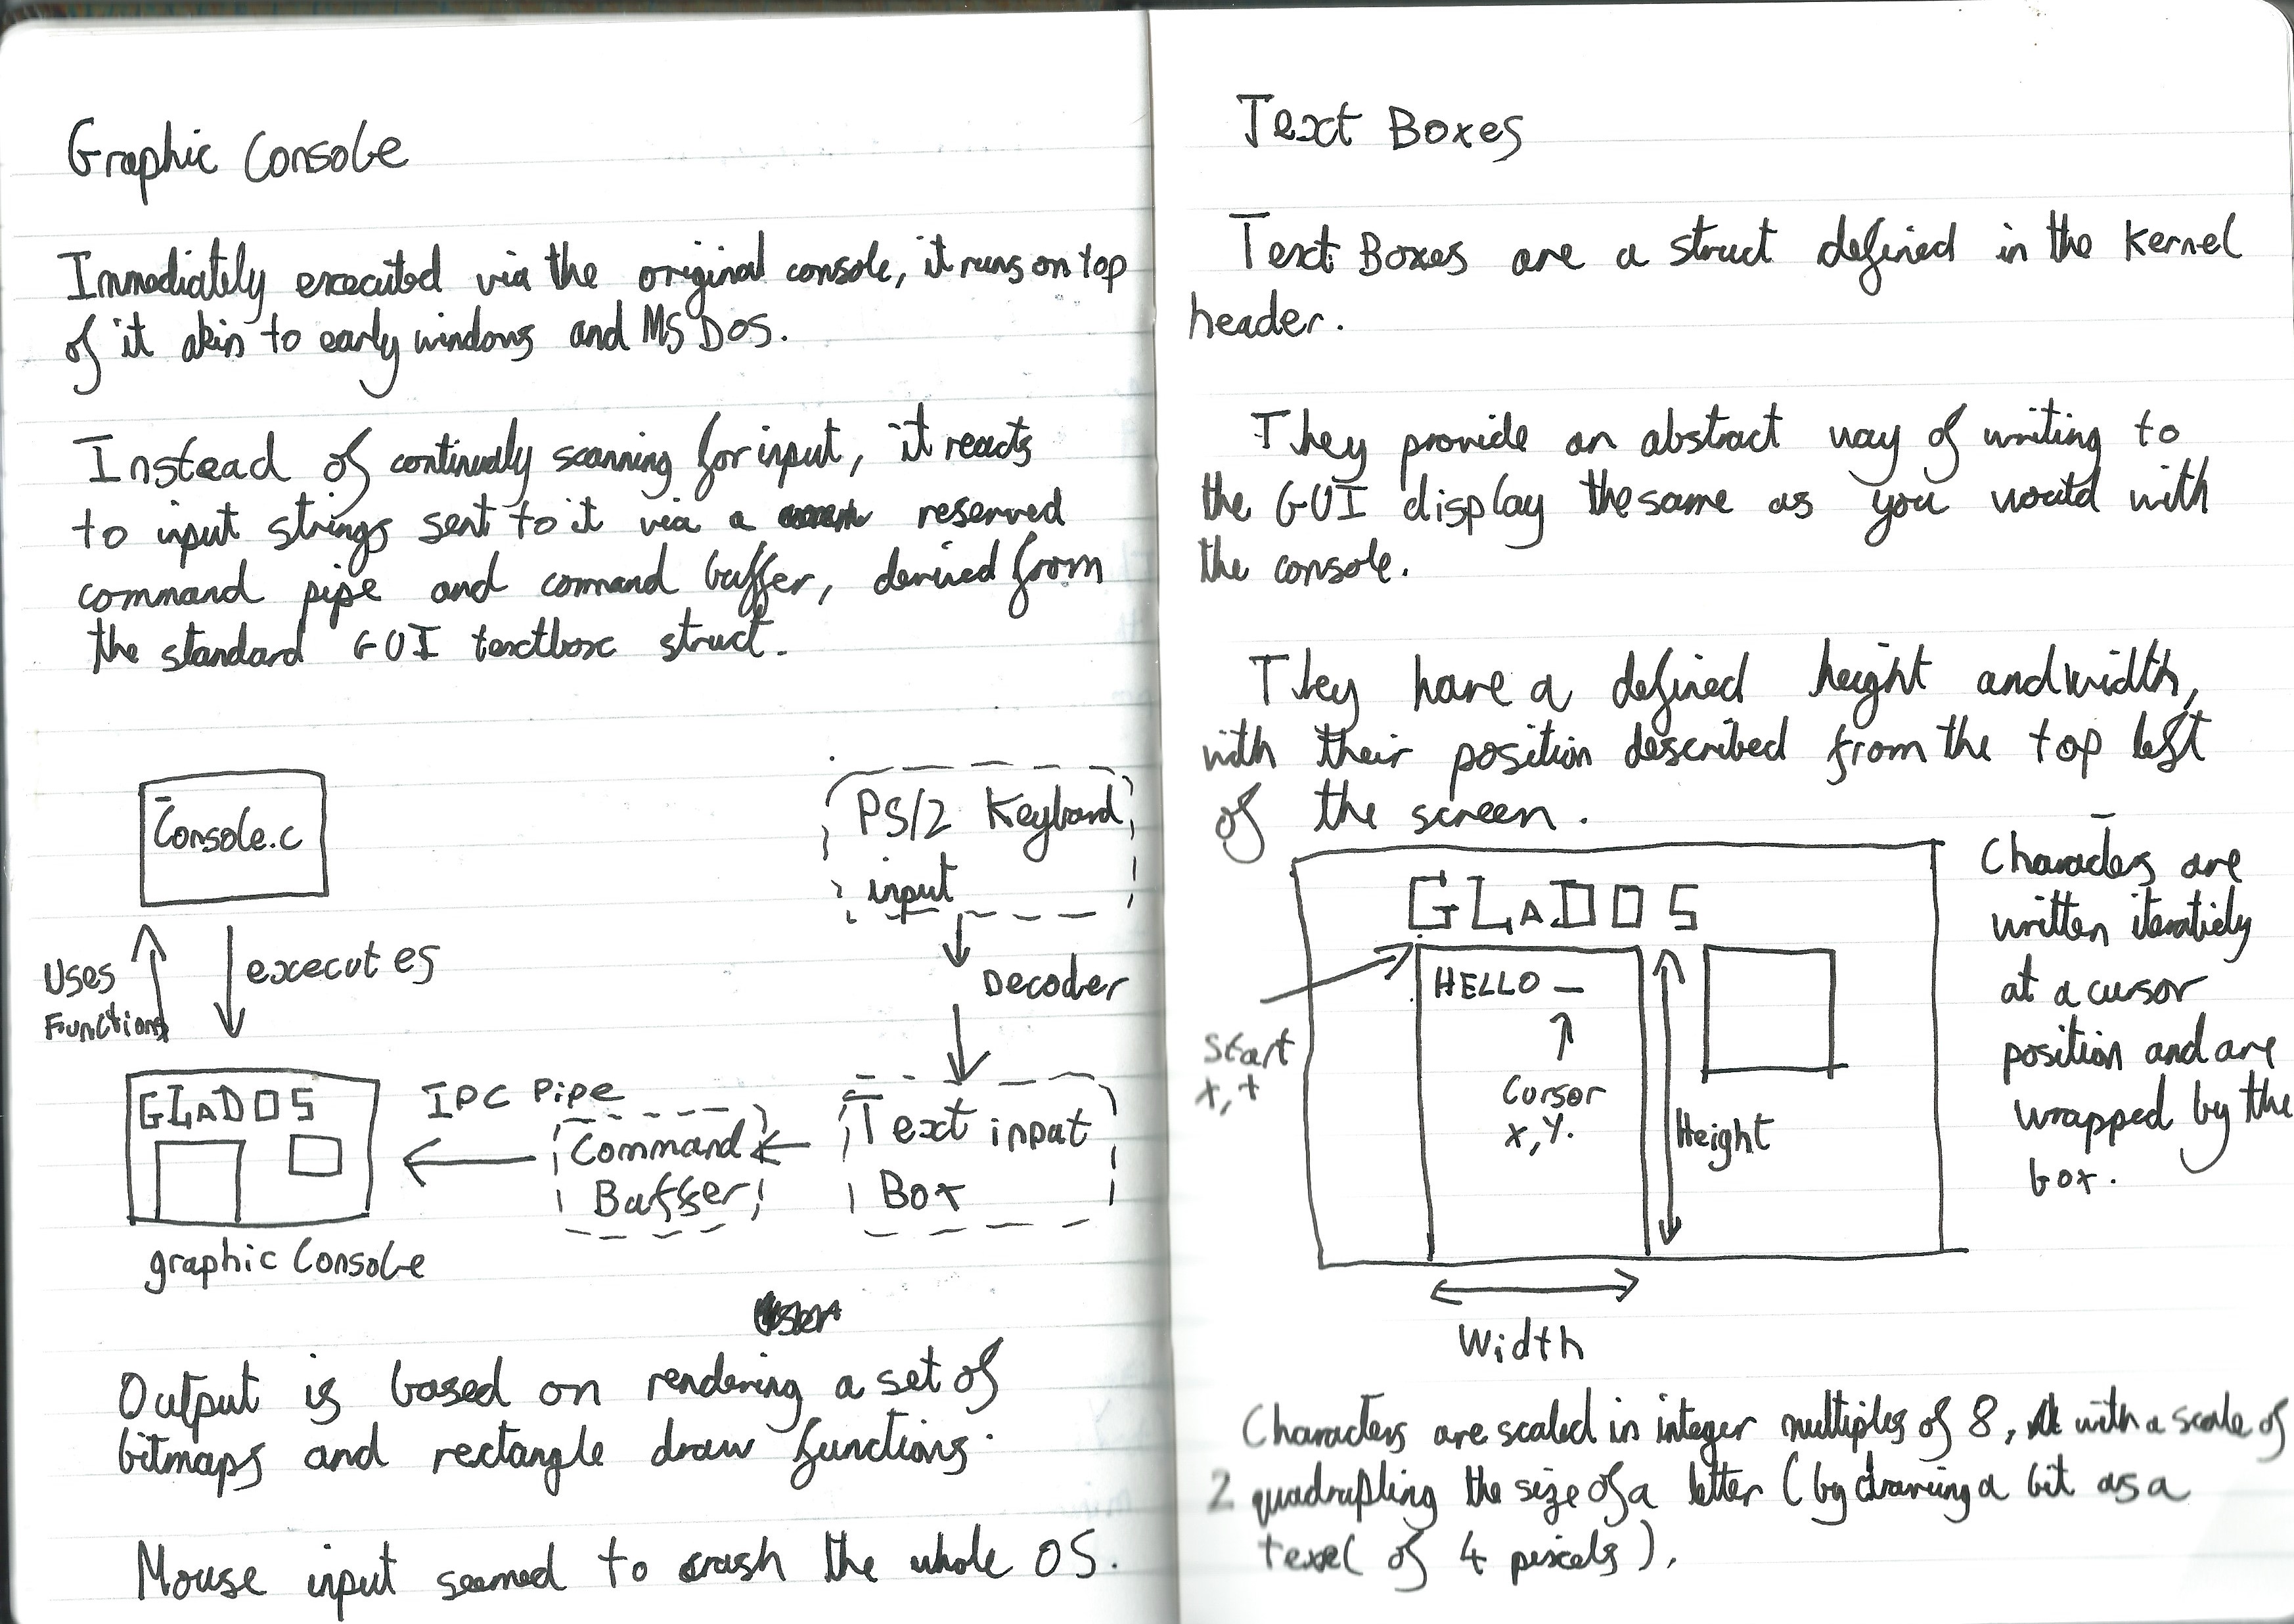 Graphic Console
Immediately executed via the original console, it runs on top
of it akin to early windows and MS DOS.
Instead of continually scanning for input, it reacts
to input strings sent to it via a reserved
command pipe and command buffer, derived from
the standard GUI textbox struct.
Console.c
Uses
Functions
executes
PS/2 Keyboard
input
Decoder
GLADOS
IPC Pipe
Command
Buffer
Text input
Box
graphic Console
User
Output is based on rendering a set of
bitmaps and rectangle draw functions.
Mouse input seemed to crash the whole OS.
Text Boxes
Text Boxes are a struct defined in the Kernel
header.
They provide an abstract way of writing to
the GUI display the same as you would with
the console.
They have a defined height and width,
with their position described from the top left
of the screen.
GLADOS
HELLO _
Start
x, y
Cursor
x, y.
Height
Width
Characters are
written iterativly
at a cursor
position and are
wrapped by the
box.
Characters are scaled in integer multiples of 8, with a scale of
2 quadrupling the size of a letter (by drawing a bit as a
texel of 4 pixels).